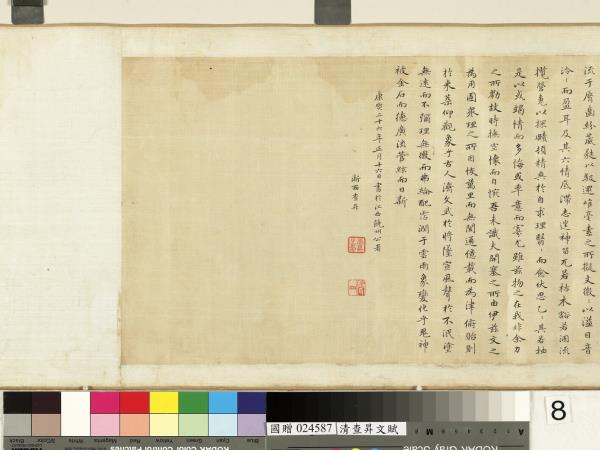 流于唇齒紛葳蕤以馺遝唯毫素之所擬文徽〻以溢目音
泠〻而盈耳及其六情底滯志逞神留兀若枯木豁若涸流
攬營魂以探賾頓精爽於自求理翳〻而愈伏思乙〻其若抽
是以或竭情而多悔或率意而寡尤雖茲物之在我非余力
之所勠故時撫空懷而自惋吾未識夫開塞之所由伊茲文之
為用固衆理之所因恢萬里而無閡通億載而為津俯貽則
於來葉仰觀象乎古人濟文武於將墜宣風聲於不泯塗
無遠而不彌理無微而弗綸配霑潤于雲雨象變化乎鬼神
被金石而德廣流管絃而日新
康熙二十六年正月十六日書於江西饒州公署
浙西查昇
8
國贈 024587 清查昇文賦